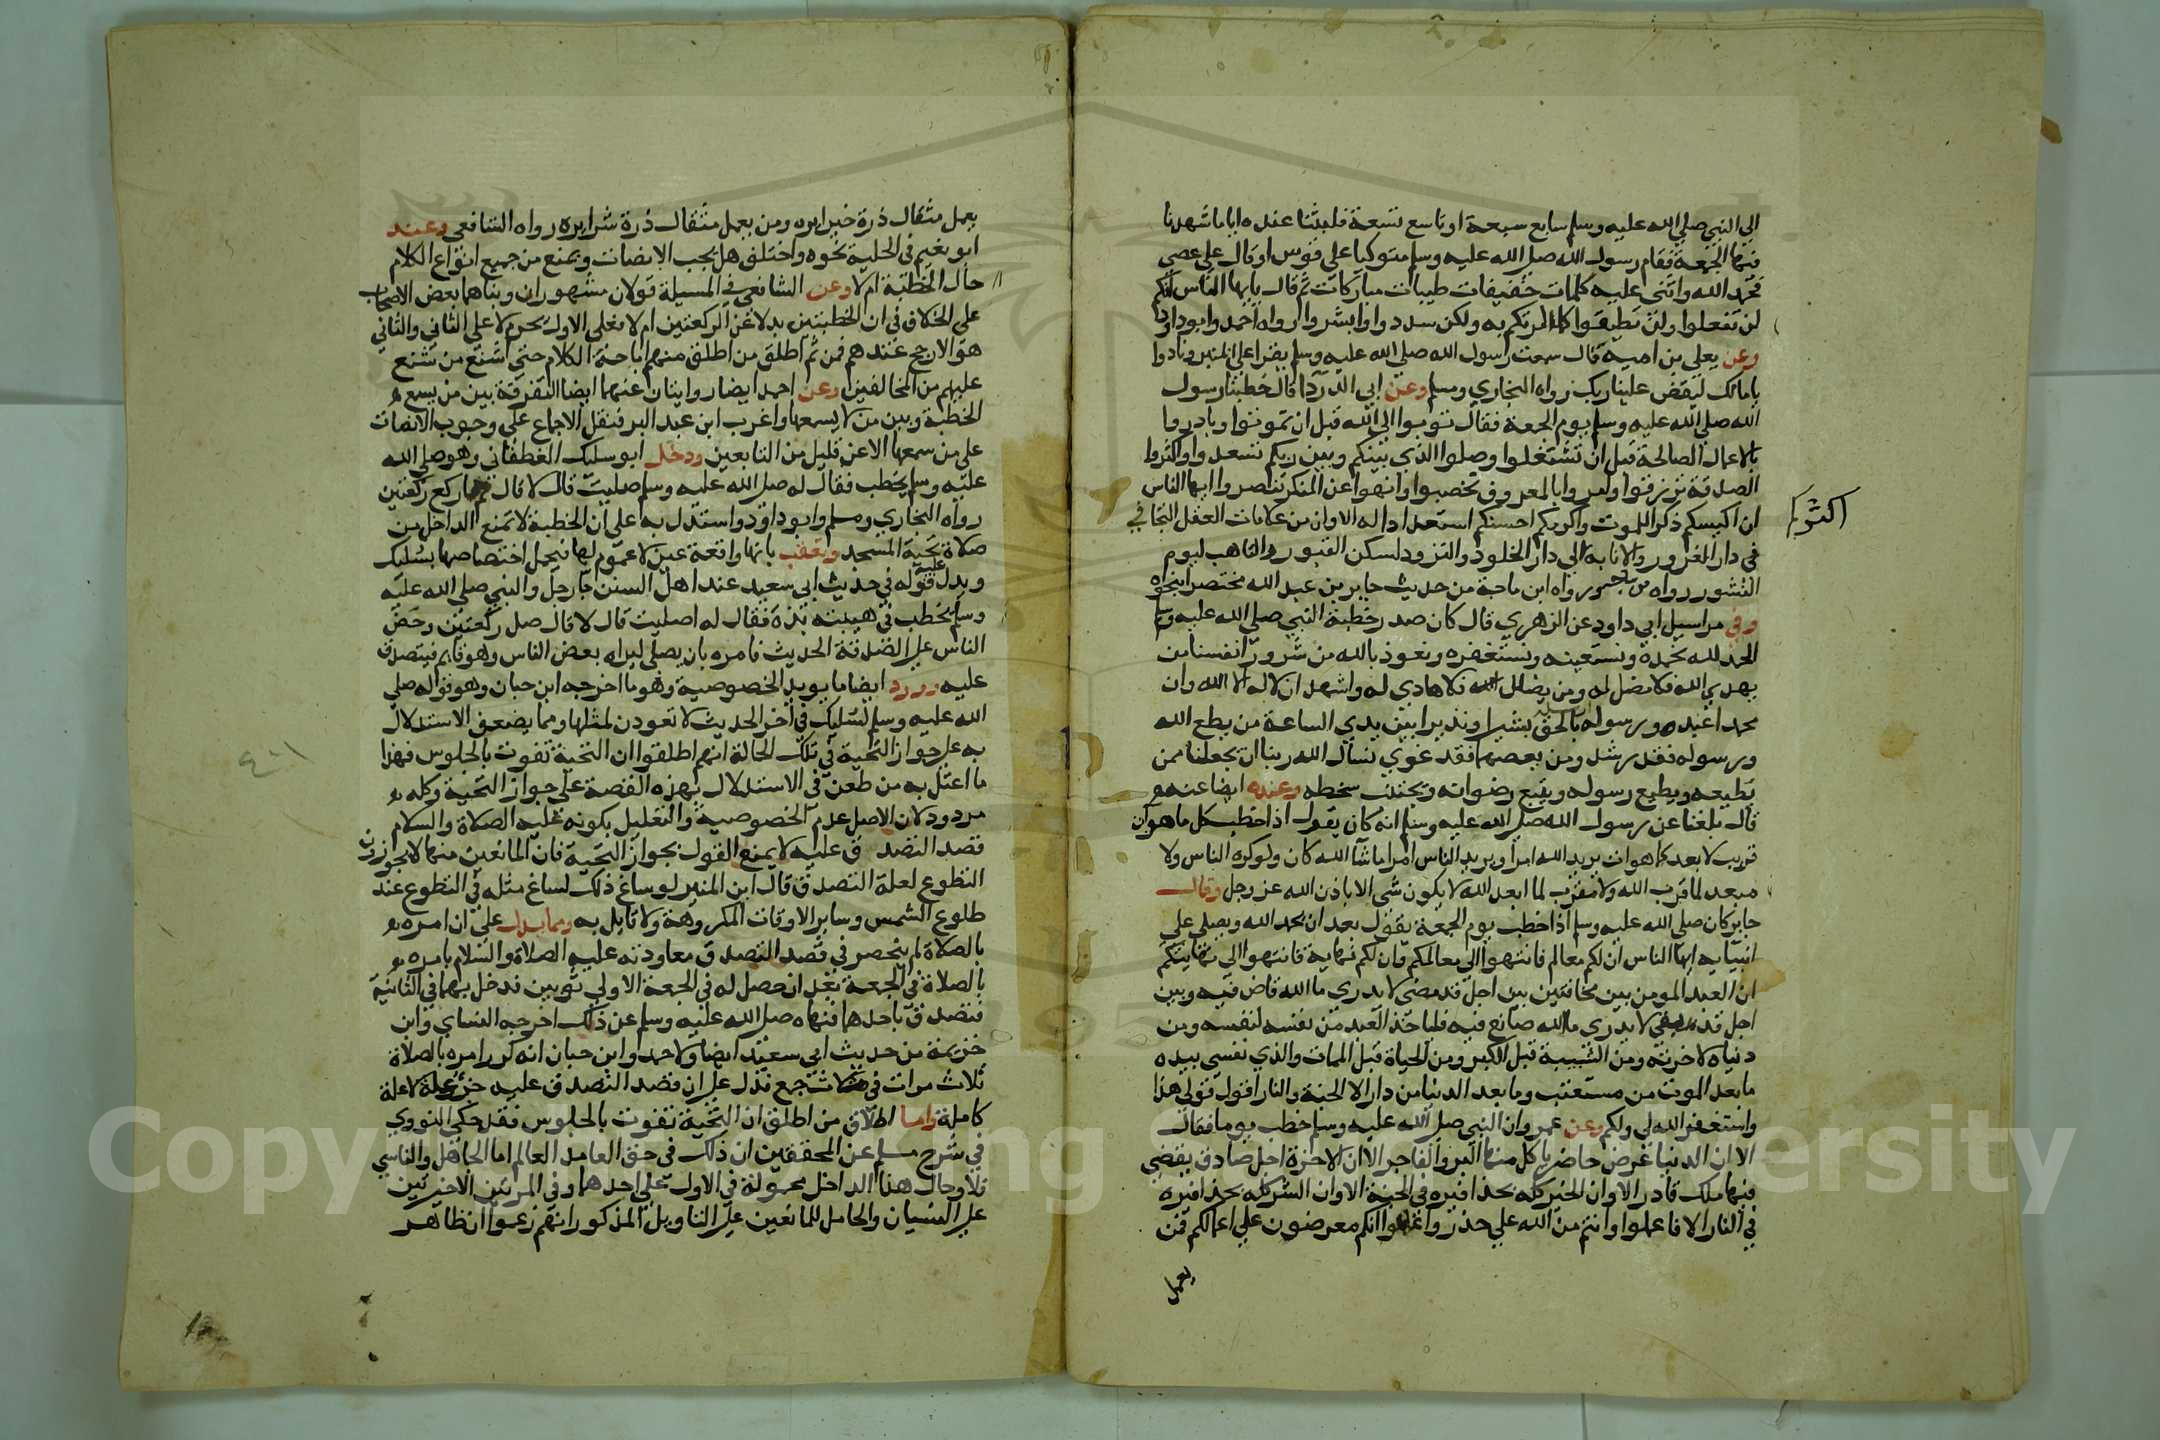 الي النبي صلي الله عليه وسلم سابع سبعة او تاسع تسعة فلبثنا عنده اياما شهدنا
فيها الجمعة فقام رسول الله صلي الله عليه وسلم متوكيا علي قوس او قال علي عصي
فحمد الله واثني عليه كلمات خفيفات طيبات مباركات ثم قال يايها الناس انكم
لن تفعلوا ولن تطيقوا كلما امرتكم به ولكن سددوا وابشروا رواه احمد وابوداود
وعن يعلي بن امية قال سمعت رسول الله صلي الله عليه وسلم يقرا علي المنبر ونادوا
يا مالك ليقض علينا ربك رواه البخاري ومسلم وعن ابي الدردا قال خطبنا رسول
الله صلي الله عليه وسلم يوم الجمعة فقال توبوا الي الله قبل ان تموتوا وبادروا
بالاعمال الصالحة قبل ان تشتغلوا وصلوا الذي بينكم وبين ربكم تسعدوا واكثروا
الصدقة ترزقوا وامروا بالمعروف تخصبوا وانهوا عن المنكر تنصروا ايها الناس
ان اكيسكم ذكرا للموت واكرمكم احسنكم استعدادا له الا وان من علامات العقل التجافي
اكثركم
في دار الغرور والانابة الي دار الخلود والتزود لسكن القبور والتاهب ليوم
النشور رواه ابن ماجة من حديث جابر بن عبد الله مختصرا بنحوه
وفي مراسيل ابي داود عن الزهري قال كان صدر خطبة النبي صلي الله عليه وسلم
الحمد لله نحمده ونستعينه ونستغفره ونعوذ بالله من شرور انفسنا من
يهدي الله فلا مضل له ومن يضلل فلا هادي له واشهد ان لا اله الا الله وان
محمدا عبده ورسوله بالحق بشيرا ونذيرا بين يدي الساعة من يطع الله
ورسوله فقد رشد ومن يعصهما فقد غوي نسأل الله ربنا ان يجعلنا ممن
يطيعه ويطيع رسوله ويتبع رضوانه ويجتنب سخطه وعنده ايضا عنه
قال بلغنا عن رسول الله صلي الله عليه وسلم انه كان يقول اذا خطب كل ما هو ات
قريب لا بعد لما هوات يريد الله امرا ويريد الناس امرا ما شآ الله كان ولو كره الناس ولا
مبعد لما قرب الله ولا مقرب لما ابعد الله لا يكون شي الا باذن الله عز وجل وقال
جابر كان صلي الله عليه وسلم اذا خطب يوم الجمعة يقول بعد ان يحمد الله ويصلي علي
انبيايه ايها الناس ان لكم معالم فانتهوا الي معالمكم وان لكم نهاية فانتهوا الي نهايتكم
ان العبد المومن بين مخافتين بين اجل قد مضي لا يدري ما الله قاض فيه وبين
اجل قد بقي لا يدري ما الله صانع فيه فلياخذ العبد من نفسه لنفسه ومن
دنياه لاخرته ومن الشبيبة قبل الكبر ومن الحياة قبل الممات والذي نفسي بيده
ما بعد الموت من مستعتب وما بعد الدنيا من دار الا الجنة والنار اقول قولي هذا
واستغفر الله لي ولكم وعن عمرو ان النبي صلي الله عليه وسلم خطب يوما فقال
الا ان الدنيا عرض حاضر ياكل منها البر والفاجر الا ان الاخرة اجل صادق يقضي
فيها ملك قادر الا وان الخير كله بحذافيره في الجنة الا وان الشر كله بحذافيره
في النار الا فاعملوا وانتم من الله علي حذر واعلموا انكم معرضون علي اعمالكم فمن
يعمل
يعمل مثقال ذرة خيرا يره ومن يعمل مثقال ذرة شرا يره رواه الشافعي وعند
ابو نعيم في الحلية نحوه واختلف هل يجب الانصات ويمنع من جميع انواع الكلام
حال الخطبة ام لا وعن الشافعي في المسيلة قولان مشهوران وبناهما بعض الاصحاب
علي الخلاف في ان الخطبتين بدلا عن الركعتين ام لا فعلي الاول يحرم لا علي الثاني والثاني
هو الارجح عندهم فمن ثم اطلق من اطلق منهم اباحة الكلام حتي شنع من شنع
عليهم من المخالفين وعن احمد ايضا روايتان عنهما ايضا التفرقة بين من يسمع
الخطبة وبين من لا يسمعها واغرب ابن عبد البر فنقل الاجماع علي وجوب الانصات
علي من سمعها الا عن قليل من التابعين ودخل ابو سليك الغطفاني وهو صلي الله
عليه وسلم يخطب فقال له صلي الله عليه وسلم صليت قال لا قال قم فاركع ركعتين
رواه البخاري ومسلم وابو داود واستدل به علي ان الخطبة لا تمنع الداخل من
صلاة تحية المسجد وتعقب بانها واقعة عين لا عموم لها فيحمل اختصاصها بسليك
ويدل عليه قوله في حديث ابي سعيد عند اهل السنن جا رجل والنبي صلي الله عليه
وسلم يخطب في هيبته بذة فقال له اصليت قال لا قال صل ركعتين وحض
الناس علي الصدقة الحديث فامره بان يصلي ليراه بعض الناس وهو قايم فيتصدق
عليه وورد ايضا ما يويد الخصوصية وهو ما اخرجه ابن حبان وهو قوله صلي
الله عليه وسلم لسليك في اخر الحديث لا تعودن لمثلها ومما يضعف الاستدلال
به علي جواز التحية في تلك الحالة انهم اطلقوا ان التحية تفوت بالجلوس فهذا
ما اعتل به من طعن في الاستدلال بهذه القصة علي جواز التحية وكله
مردود لان الاصل عدم الخصوصية والتعليل بكونه عليه الصلاة والسلام
قصد التصدق عليه لا يمنع القول بجواز التحية فان المانعين منها لا يجوزون
التطوع لعلة التصدق قال ابن المنير لو ساغ ذلك لساغ مثله في التطوع عند
طلوع الشمس وساير الاوقات المكروهة ولا قايل به ومما يدل علي ان امره
بالصلاة لم ينحصر في قصد التصدق معاودته عليه الصلاة والسلام بامره
بالصلاة في الجمعة بعد ان حصل له في الجمعة الاولي ثوبين فدخل بهما في الثانية
فتصدق باحدهما فنهاه صلي الله عليه وسلم عن ذلك اخرجه النساي وابن
خزيمة من حديث ابي سعيد ايضا ولاحمد وابن حبان انه كرر امره بالصلاة
ثلاث مرات في ثلاث جمع فدل علي ان قصد التصدق عليه جزء علة لا علة
كاملة واما اطلاق من اطلق ان التحية تفوت بالجلوس فقد حكي النووي
في شرح مسلم عن المحققين ان ذلك في حق العامد العالم اما الجاهل والناسي
فلا وحال هذا الداخل محمولة في الاولي علي احدهما وفي المرتين الاخيرتين
علي النسيان والحامل للمانعين علي التاويل المذكور انهم زعموا ان ظاهر
Copyright © King Saud University